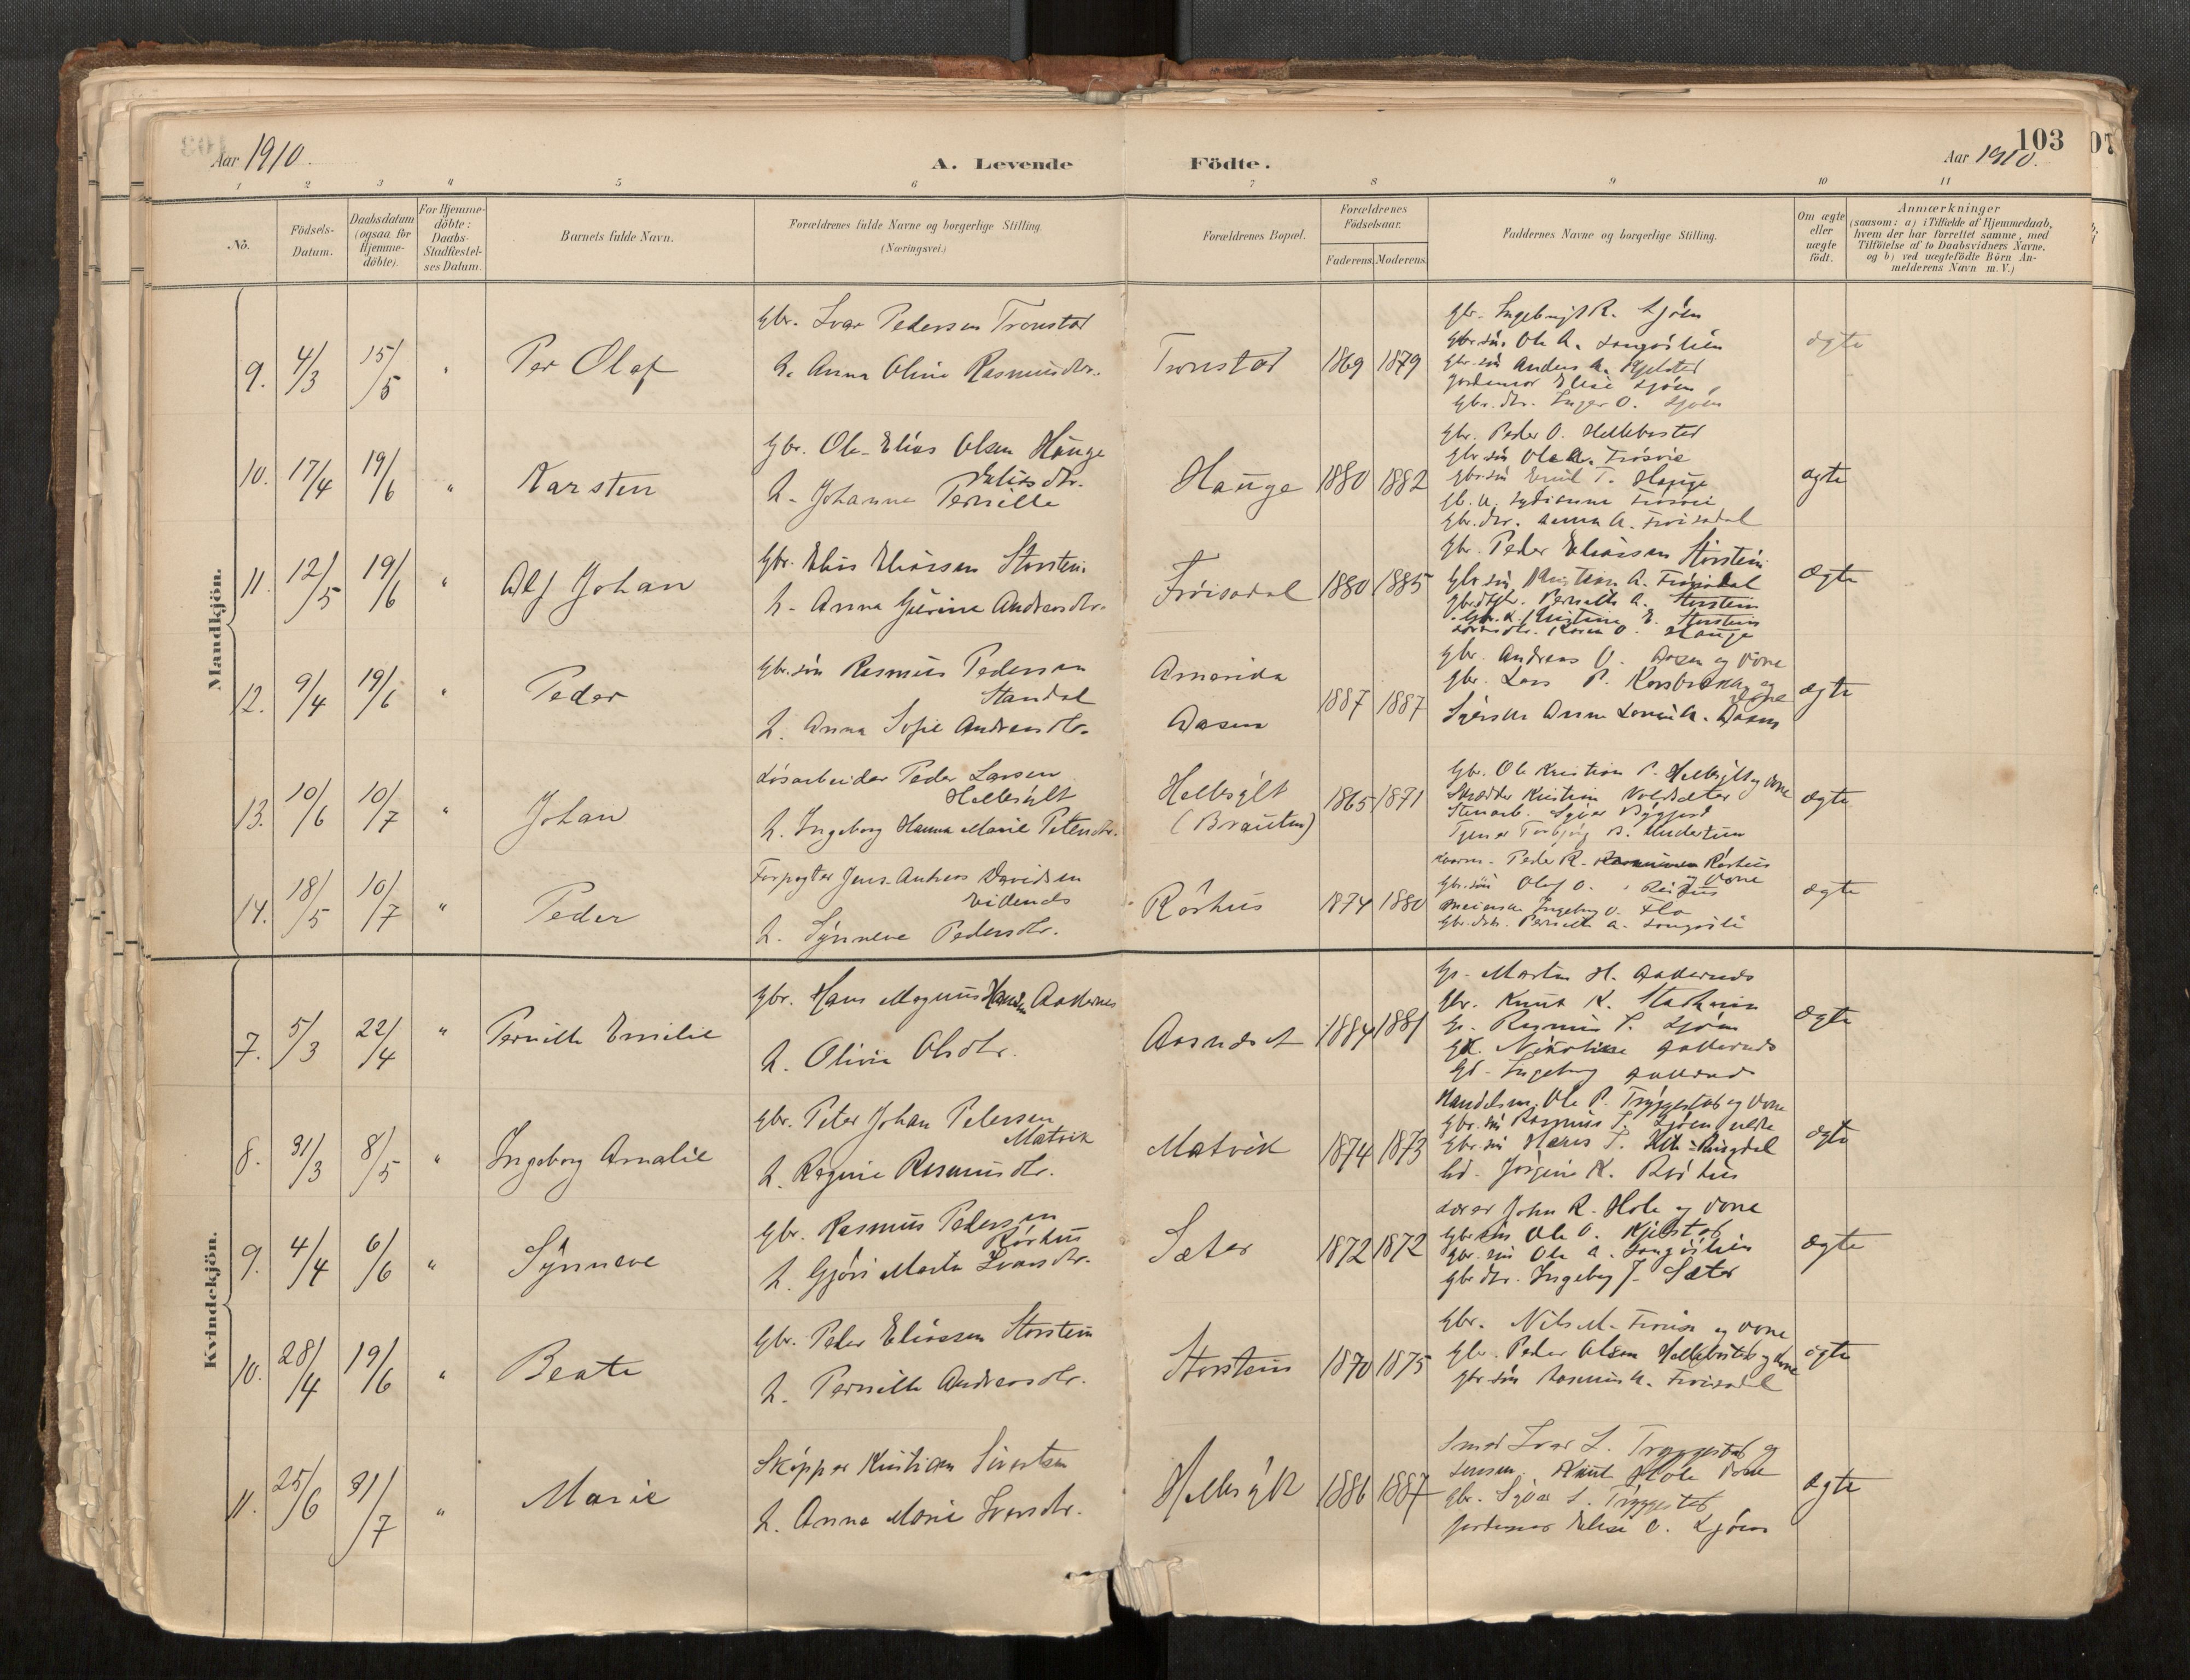 103
Aar 1910.
A. Levende Födte.
Aar 1910.
1 2 3 4 5 6 7 8 9 10 11
Nô.
Födsels-Datum.
Daabsdatum (ogsaa for Hjemme-döbte).
For Hjemme-döbte: Daabs-Stadfæstel-ses Datum.
Barnets fulde Navn.
Forældrenes fulde Navne og borgerlige Stilling. (Næringsvei.)
Forældrenes Bopæl.
Forældrenes Födselsaar.
Faderens. Moderens.
Faddernes Navne og borgerlige Stilling.
Om ægte eller uægte födt.
Anmærkninger
(saasom: a) i Tilfælde af Hjemmedaab,
hvem der har forrettet samme, med
Tilföielse af to Daabsvidners Navne,
og b) ved uægtefödte Börn An-
melderens Navn m. V.)
Mandkjön.
9. 4/3 15/5 " Per Olaf
Gbr. Ivar Pedersen Tronstad
h. Anna Oline Rasmusdtr.
Tronstad 1869 1879
gbr. R. Ljöen
gbr.sön Ole A.
gbr.sön Anders A.
Jordemor Elise Ljöen
gbr.dtr. Inger O. Ljöen
ægte
10. 17/4 19/6 " Karsten
Gbr. Ole Elias Olsen Hauge
h. Johanne Pernille Eliasdtr.
Hauge 1880 1882
gbr. Peder O. Hellebostad
gbr.sön Ole
gbr.sön Emil T. Hauge
gbr.dtr. Anna A. Fröisadal
ægte
11. 12/5 19/6 " Alf Johan
Gbr. Elias Eliassen Storstein
h. Anna Gurine Andreasdtr.
Fröisadal 1880 1885
gbr. Peder Eliassen Storstein
gbr.sön Kristian A. Fröisadal
Pernille A. Storstein
Kristine E. Storstein
Karen O. Hauge
ægte
12. 9/4 19/6 " Peder
Gbr.sön Rasmus Pedersen
Standal
h. Anna Sofie Andreasdtr.
Amerika
Aasen
1887 1887
gbr. Andreas O. Aasen og Kone
gbr. Lars P. Korsbrekke og
Kone
Anne A. Aasen
ægte
13. 10/6 10/7 " Johan
Lösarbeider Peder Larsen
Hellesylt
h. Ingeborg Hanna Marie Petersdtr.
Hellesylt
(Brauten)
1865 1871
gbr. Ole Kristian P. Hellesylt og Kone
Skrædder Kristian
Stenarb.
B. Undertun
ægte
14. 18/5 10/7 " Peder
Forpagter Jens Andreas Davidsen
h. Synneve Pedersdtr.
Rörhus 1874 1880
Peder R. Rörhus
og Kone
gbr.sön Olaf O. Rörhus
Ingeborg O. Flo
gbr.dtr. Pernille A.
ægte
Kvindekjön.
7. 5/3 22/4 " Pernille Emilie
Gbr. Hans Magnus Hansen
h. Olivia Olsdtr.
1884 1881
Martin H.
gbr. Knut K.
Rasmus P. Ljöen
Nikoline
Ingeborg
ægte
8. 31/3 8/5 " Ingeborg Amalie
Gbr. Peter Johan Petersen
Matvik
h. Regine Rasmusdtr.
Matvik 1874 1873
Handelsm. Ole P. Tryggestad og Kone
gbr.sön Rasmus P. Ljöen
gbr.sön Hans P.
Jörgine K. Rörhus
ægte
9. 4/4 6/6 " Synneve
Gbr. Rasmus Pedersen
Rörhus
h. Gjöri Marta Ivarsdtr.
Sæter 1872 1872
Lærer John R. Hole og Kone
gbr.sön Ole O. Kjelstad
gbr.sön Ole A.
gbr.dtr. Ingeborg J. Sæter
ægte
10. 28/4 19/6 " Beate
Gbr. Peder Eliassen Storstein
h. Pernille Andreasdtr.
Storstein 1870 1875
gbr. Nils M. og Kone
gbr. Peder Olsen Hellebostad og Kone
gbr.sön Rasmus A. Fröisadal
ægte
11. 25/6 31/7 " Marie
Skipper Kristian Sivertsen
h. Anna Marie Ivarsdtr.
Hellesylt 1886 1887
Smed Ivar L. Tryggestad og
Knut Hole Kone
gbr. L. Tryggestad
Jordemor Elise O. Ljöen
ægte